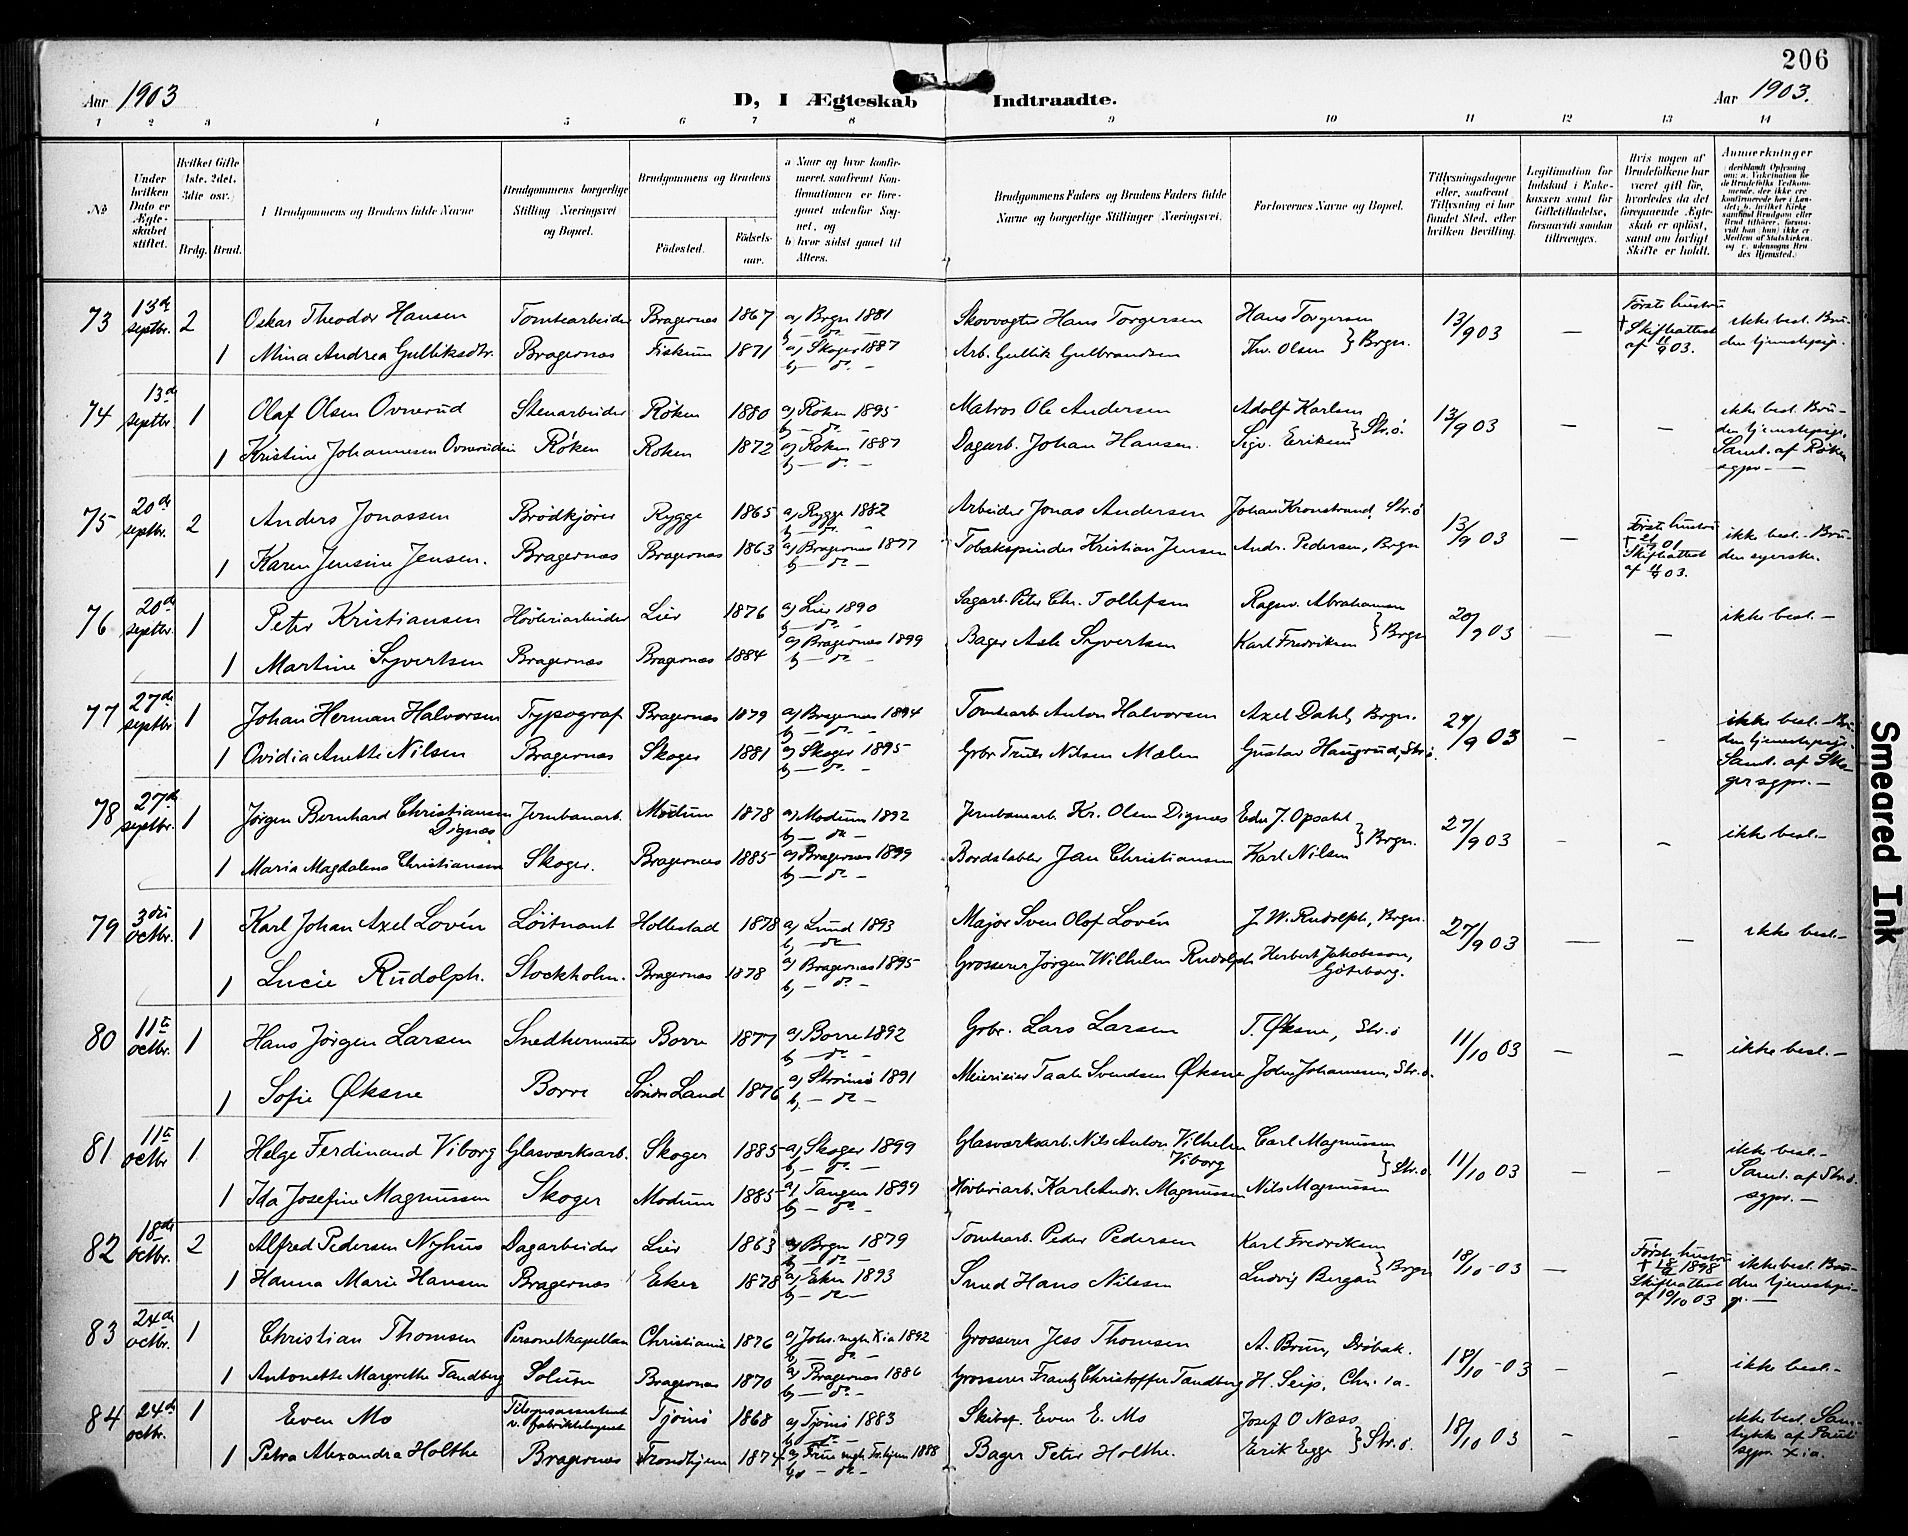 206
Aar 1903
D, I Ægteskab Indtraadte.
Aar 1903.
1 2 3 4 5 6 7 8 9 10 11 12 13 14
No
Under hvilken Dato er Ægteskabet stiftet.
Hvilket Gifte (1ste, 2det, 3die osv.)
Brdg. Brud.
Brudgommens og Brudens fulde Navne
Brudgommens borgerlige Stilling (Næringsvei og Bopæl.
Brudgommens og Brudens
Fødested. Fødsels-aar.
a Naar og hvor konfirmeret, saafremt Konfirmationen er foregaaet udenfor Sognet, og
b) hvor sidst gaaet til Alters.
Brudgommens Faders og Brudens Faders fulde Navne og borgerlige Stillinger (Næringsvei.
Forlovernes Navne og Bopæl.
Tillysningsdagene eller, saafremt Tillysning ei har fundet Sted, efter hvilken Bevilling.
Legitimation for Indskud i Enkekassen samt for Giftetilladelse, forsaavidt saadan tiltrænges.
Hvis nogen af Brudefolkene har været gift før, hvorledes da det foregaaende Ægteskab er opløst, samt om lovligt Skifte er holdt.
Anmærkninger
73 13de septbr. 2 Oskar Theodor Hansen Tomtearbeider Bragernes 1867 a) Brgn 1881 Skovvogter Hans Torgersen Hans Torgersen 13/9 03 — Første hustru † Skifteattest af 11/9 03. ikke besl. Bru-
1 Mina Andrea Gulliksdtr. Bragernes Fiskum 1871 a) Skoger 1887 b) — do. — Arb. Gullik Gulbrandsen Thv. Olsen } Brgn. den tjenestepige.
74 13de septbr. 1 Olaf Olsen Ovnerud Stenarbeider Røken 1880 a) Røken 1895 b) — do. — Matros Ole Andersen Adolf Karlsen 13/9 03 — — ikke besl. Bru-
1 Kristine Johannesen Ovnerudeie Røken Røken 1872 a) Røken 1887 b) — do. — Dagarb. Johan Hansen. Sigv. Eriksen } Str.ö. den tjenestepige. Saml. af Røken sgpr. —
75 20de septbr. 2 Anders Jonassen Brødkjører Rygge 1865 a) Rygge 1882 b) — do. — Arbeider Jonas Andersen Johan Kronstrand, Str.ö 13/9 03 — Første hustru † 01 Skifteattest af 11/9 03. ikke besl. Bru-
1 Karen Jensine Jensen. Bragernes Bragernes 1863 a) Bragernes 1877 b) — do. — Tobakspinder Kristian Jensen Andr. Pedersen, Brgn den syerske.
76 20de septbr. 1 Peter Kristiansen Høvleriarbeider Lier 1876 a) Lier 1890 b) — do. — Sagarb. Peter Chr. Tollefsen Ragnv. Abrahamsen 20/9 03 — — ikke besl. —
1 Martine Syvertsen Bragernes Bragernes 1884 a) Bragernes 1899 b) — do. — Bager Axle Syvertsen Karl Fredriksen } Brgn
77 27de septbr. 1 Johan Herman Halvorsen Typograf Bragernes 1879 a) Bragernes 1894 b) — do. — Tomtearb. Anton Halvorsen Axel Dahl, Brgn. 27/9 03 — — ikke besl. Bru-
1 Ovidia Anette Nilsen Bragernes Skoger 1881 a) Skoger 1895 b) — do. — Grbr. Truls Nilsen Malen Gustav Haugrud, Str.ö. den tjenestepige. Saml. af Skoger sgpr. —
78 27de septbr. 1 Jørgen Bernhard Christiansen Dignæs Jernbanarb. Modum 1878 a) Modum 1892 b) — do. — Jernbanearb. Kr. Olsen Dignæs Edv. J. Opsahl 27/9 03 — — ikke besl. —
1 Maria Magdalena Christiansen Skoger. Bragernes 1885 a) Bragernes 1899 b) — do. — Bordstabler Jan Christiansen Karl Nilsen } Brgn.
79 3die octbr. 1 Karl Johan Axel Lovén Løitnant Hollestad 1878 a) Lund 1893 b) — do. — Major Sven Olof Lovén J. W. Rudolph, Brgn. 27/9 03 — — ikke besl. —
1 Lucie Rudolph. Stockholm. Bragernes 1878 a) Bragernes 1895 b) — do. — Grosserer Jørgen Wilhelm Rudolph Herbert Jakobsson, Göteborg.
80 11te octbr. 1 Hans Jørgen Larsen Snedkermester Borre 1877 a) Borre 1892 b) — do. — Grbr. Lars Larsen T. Øksne, Str.ö 11/10 03 — — ikke besl. —
1 Sofie Øksne Borre Søndre Land 1876 a) Strømsö 1891 b) — do. — Meierieier Taale Svendsen Øksne John Johannesen, Str.ö.
81 11te octbr 1 Helge Ferdinand Viborg Glasværksarb. Skoger 1885 a) Skoger 1899 b) — do. — Glasværksarb. Nils Anton Vilhelm Viborg Carl Magnussen 11/10 03 — — ikke besl. —
1 Ida Josefine Magnussen Skoger Modum 1885 a) Tangen 1899 b) — do. — Høvleriarb. Karl Andr. Magnussen Nils Magnussen } Str.ö Saml. af Str.ö. sgpr. —
82 18de octbr. 2 Alfred Pedersen Nyhus Dagarbeider Lier 1863 a) Brgn 1879 b) — do. — Tomtearb. Peder Pedersen Karl Fredriksen 18/10 03 — Første hustru † 1898 Skifteattest af 10/10 03 ikke besl. Bru-
1 Hanna Marie Hansen Bragernes Eker 1878 a) Eker 1893 b) — do. — Smed Hans Nilsen Ludvig Bergan } Brgn den tjenestepige. —
83 24de octbr. 1 Christian Thomsen Personelkapellan Christiania 1876 a) Johs. mgh. Xia 1892 b) — do. — Grosserer Jess Thomsen A. Brun, Drøbak. 18/10 03 — — ikke besl. —
1 Antonette Margrethe Tandberg Solum Bragernes 1870 a) Bragernes 1886 b) — do. — Grosserer Frantz Christoffer Tandberg H. Seip, Chr.ia.
84 24de octbr. 1 Even Mo Tilsynsassistent v. fabriktilsynet Tjømø 1868 a) Tjømø 1883 b) — do. — Skibsf. Even E. Mo Josef O Næss 18/10 03 — — ikke besl. Sam-
1 Petra Alexandra Holthe Bragernes Trondhjem 1874 a) Frue mgh Tr.hjem 1888 b) — do. — Bager Peter Holthe. Erik Egge } Str.ö. tykke af Pauli sgpr. Xia.
Smeared Ink